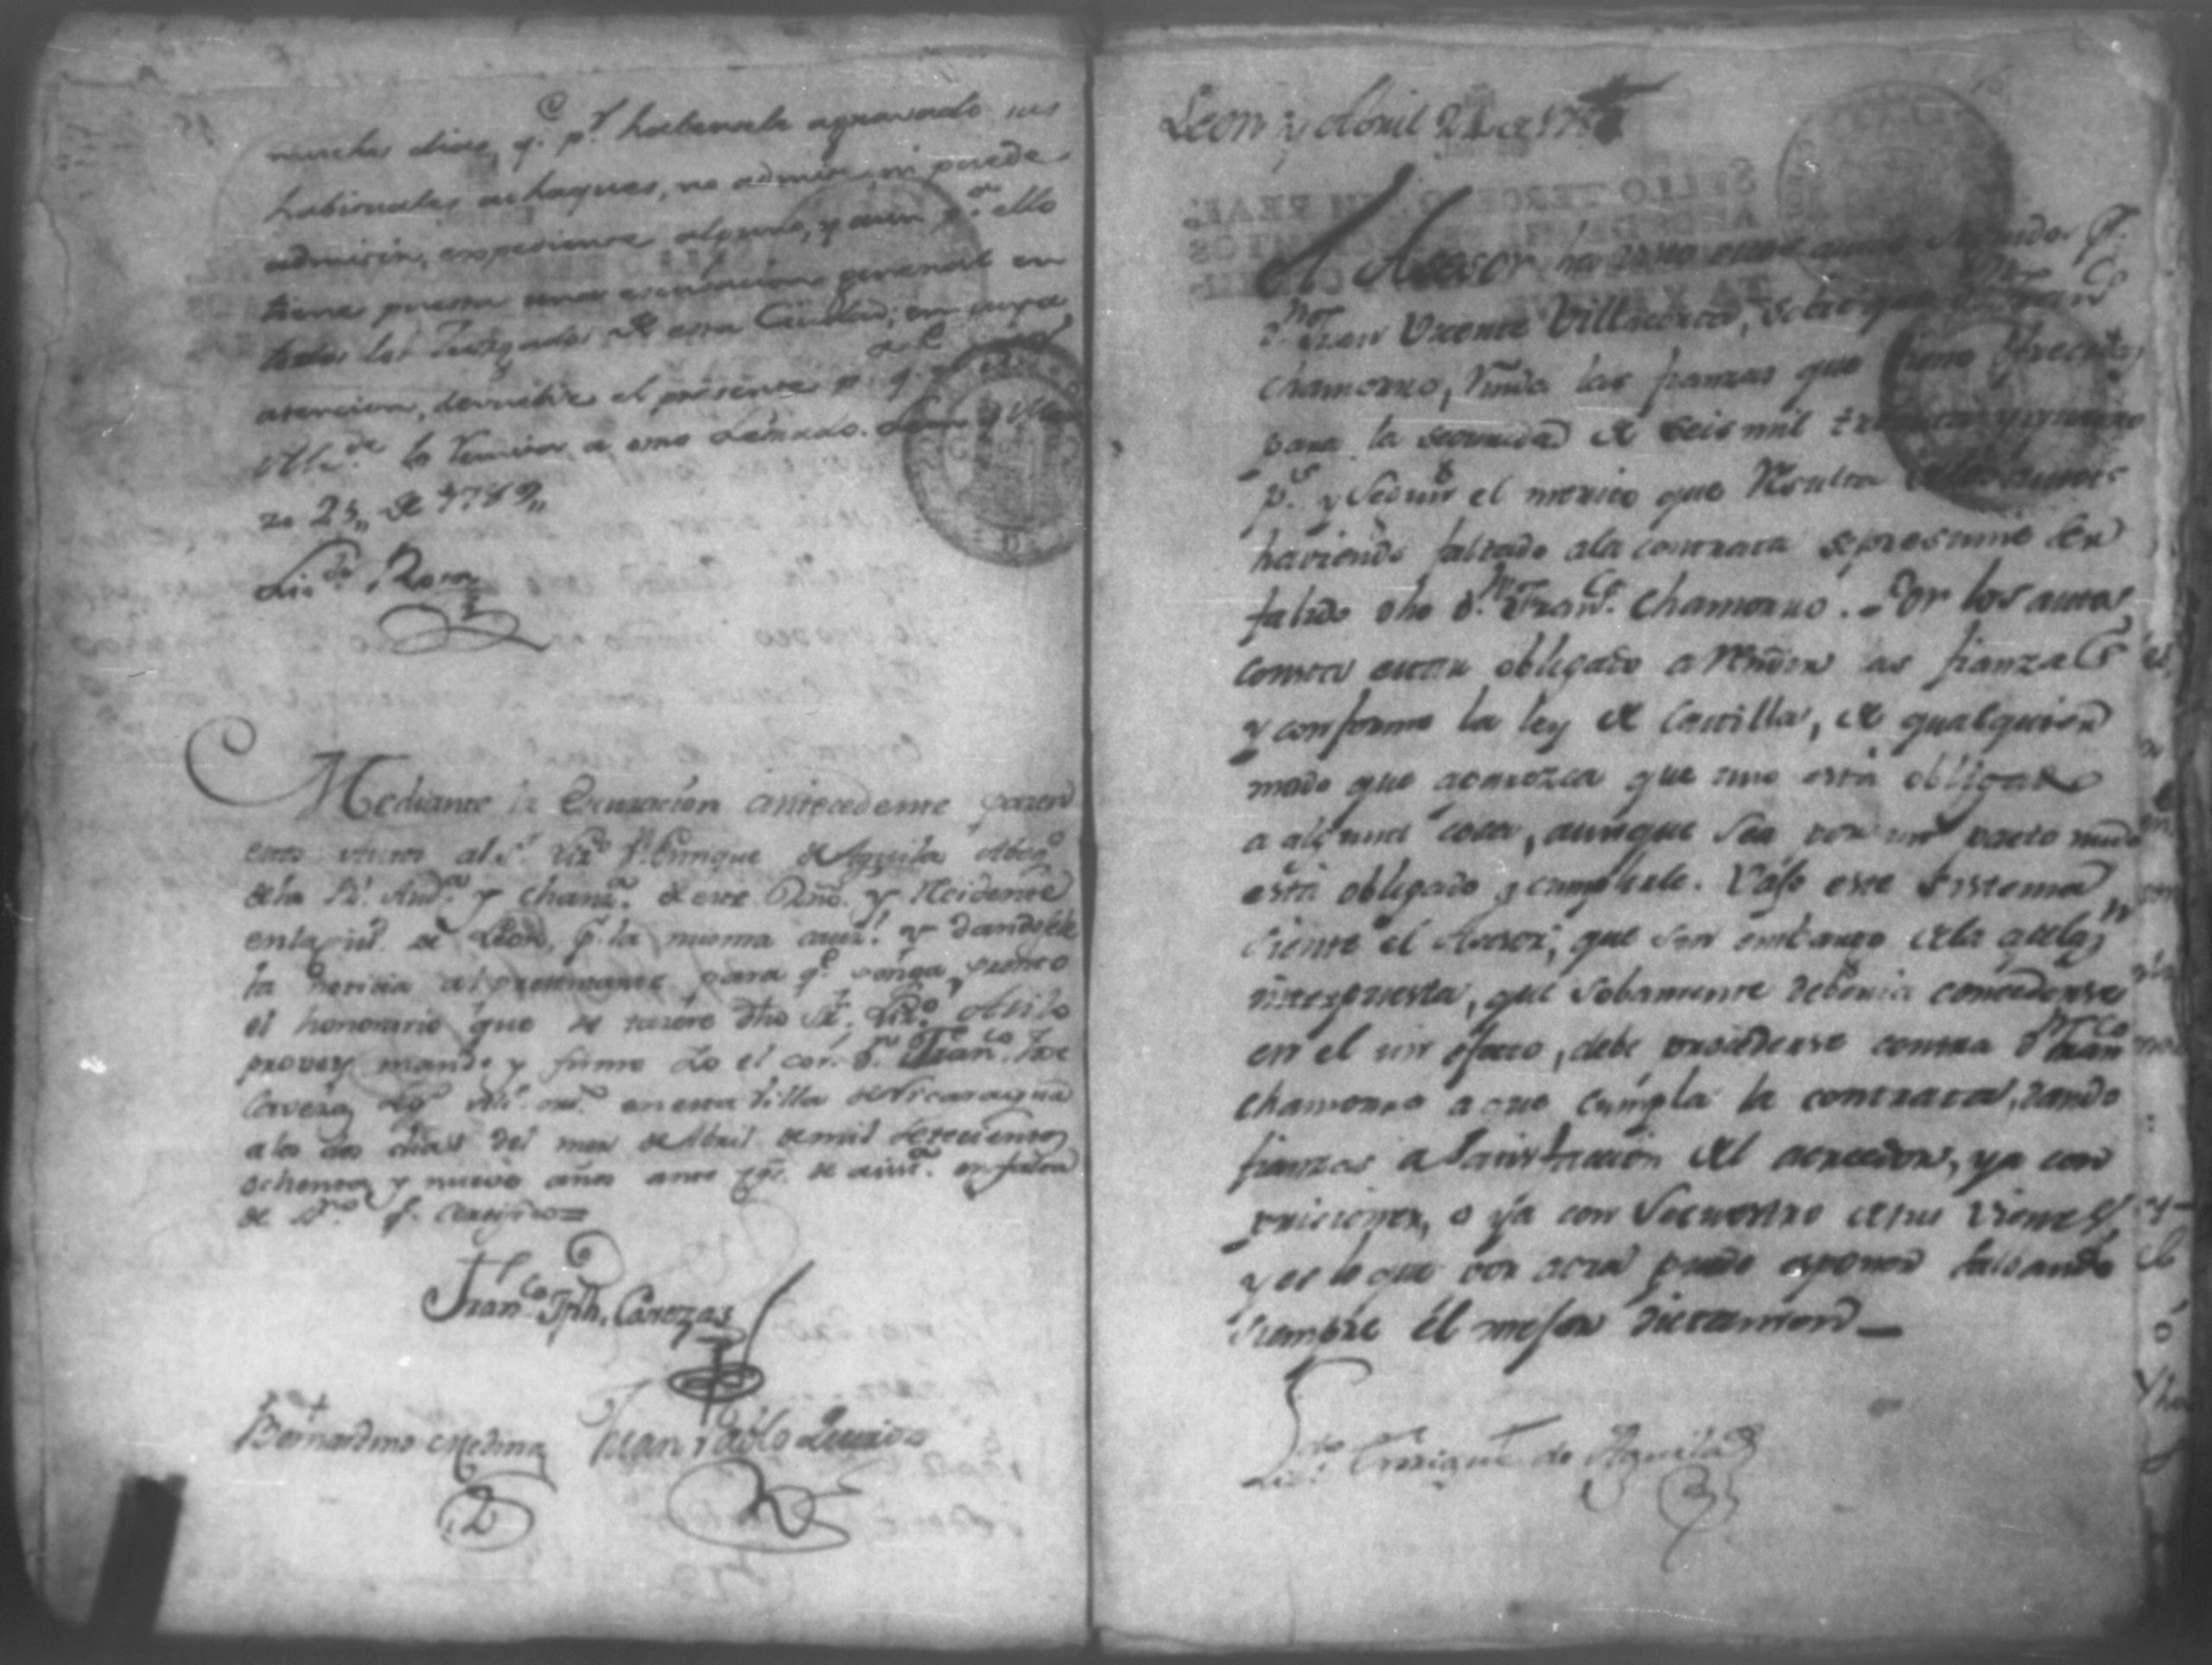 muchos dias, q.e p.r habersele agravado sus
habituales achaques, no admite ni puede
admitir, expediente alguno, y aun p.a ello
tiene puesta una escusacion general en
todos los Juzgados de esta Ciudad; en cuya
atencion, devuelve el presente p.a q.e
la remita a otro Letrado. Leon y Mar
zo 25,, de 1789,,
Lic.do Rosa
Mediante la Escusacion antecedente pasen
estos autos al S.r Liz.do D.n Enrique de Aguila Abog.do
de la R.l Aud.a y Chanz.a de este Reino y Residente
en la ciu.d de Leon, p.a la misma y dandosele
la noticia al presentante para q.e ponga pronto
el honorario que se tasare dho S.r Liz.do Asi lo
provey mande y firme Yo el D.n Fran.co Jose
Caveza en esta Villa de Nicaragua
a los dos dias del mes de Abril de mil setecientos
ochenta y nueve años ante en falta
de q.e certifico=
Fran.co Jph. Cavezas
Bernardino Medina Juan Pablo
Leon y Abril 21 de
El Asesor ha visto estos autos seguidos p.r
D.n Juan Vicente Villacorta, sobre que D.n Fran.co
Chamorro, rinda las fianzas que tiene ofrecidas
para la seguridad de seis mil trescientos y quatro
p.s y segun el merito que resulta
haviendo faltado a la contrata se presume ser
falido dho D.n Fran.co Chamorro. Por los autos
consta estar obligado a rendir las fianzas
y conforme la ley de Castilla, de qualquier
modo que aparezca que uno está obligado
a alguna cosa, aunque sea por un pacto nudo
está obligado a cumplirle. Vajo este sistema
siente el Asesor, que sin embargo de la apelaz.n
interpuesta, que solamente deberia concederse
en el un efecto, debe procederse contra D.n Fran.co
Chamorro a que cumpla la contrata, dando
fianzas a satisfaccion del acreedor, ya con
priciones, o ya con secuestro de sus vienes,
y es lo que por aora puede esponer salvando
siempre el mejor dictamen—
Lic.do Enrique de Aguila